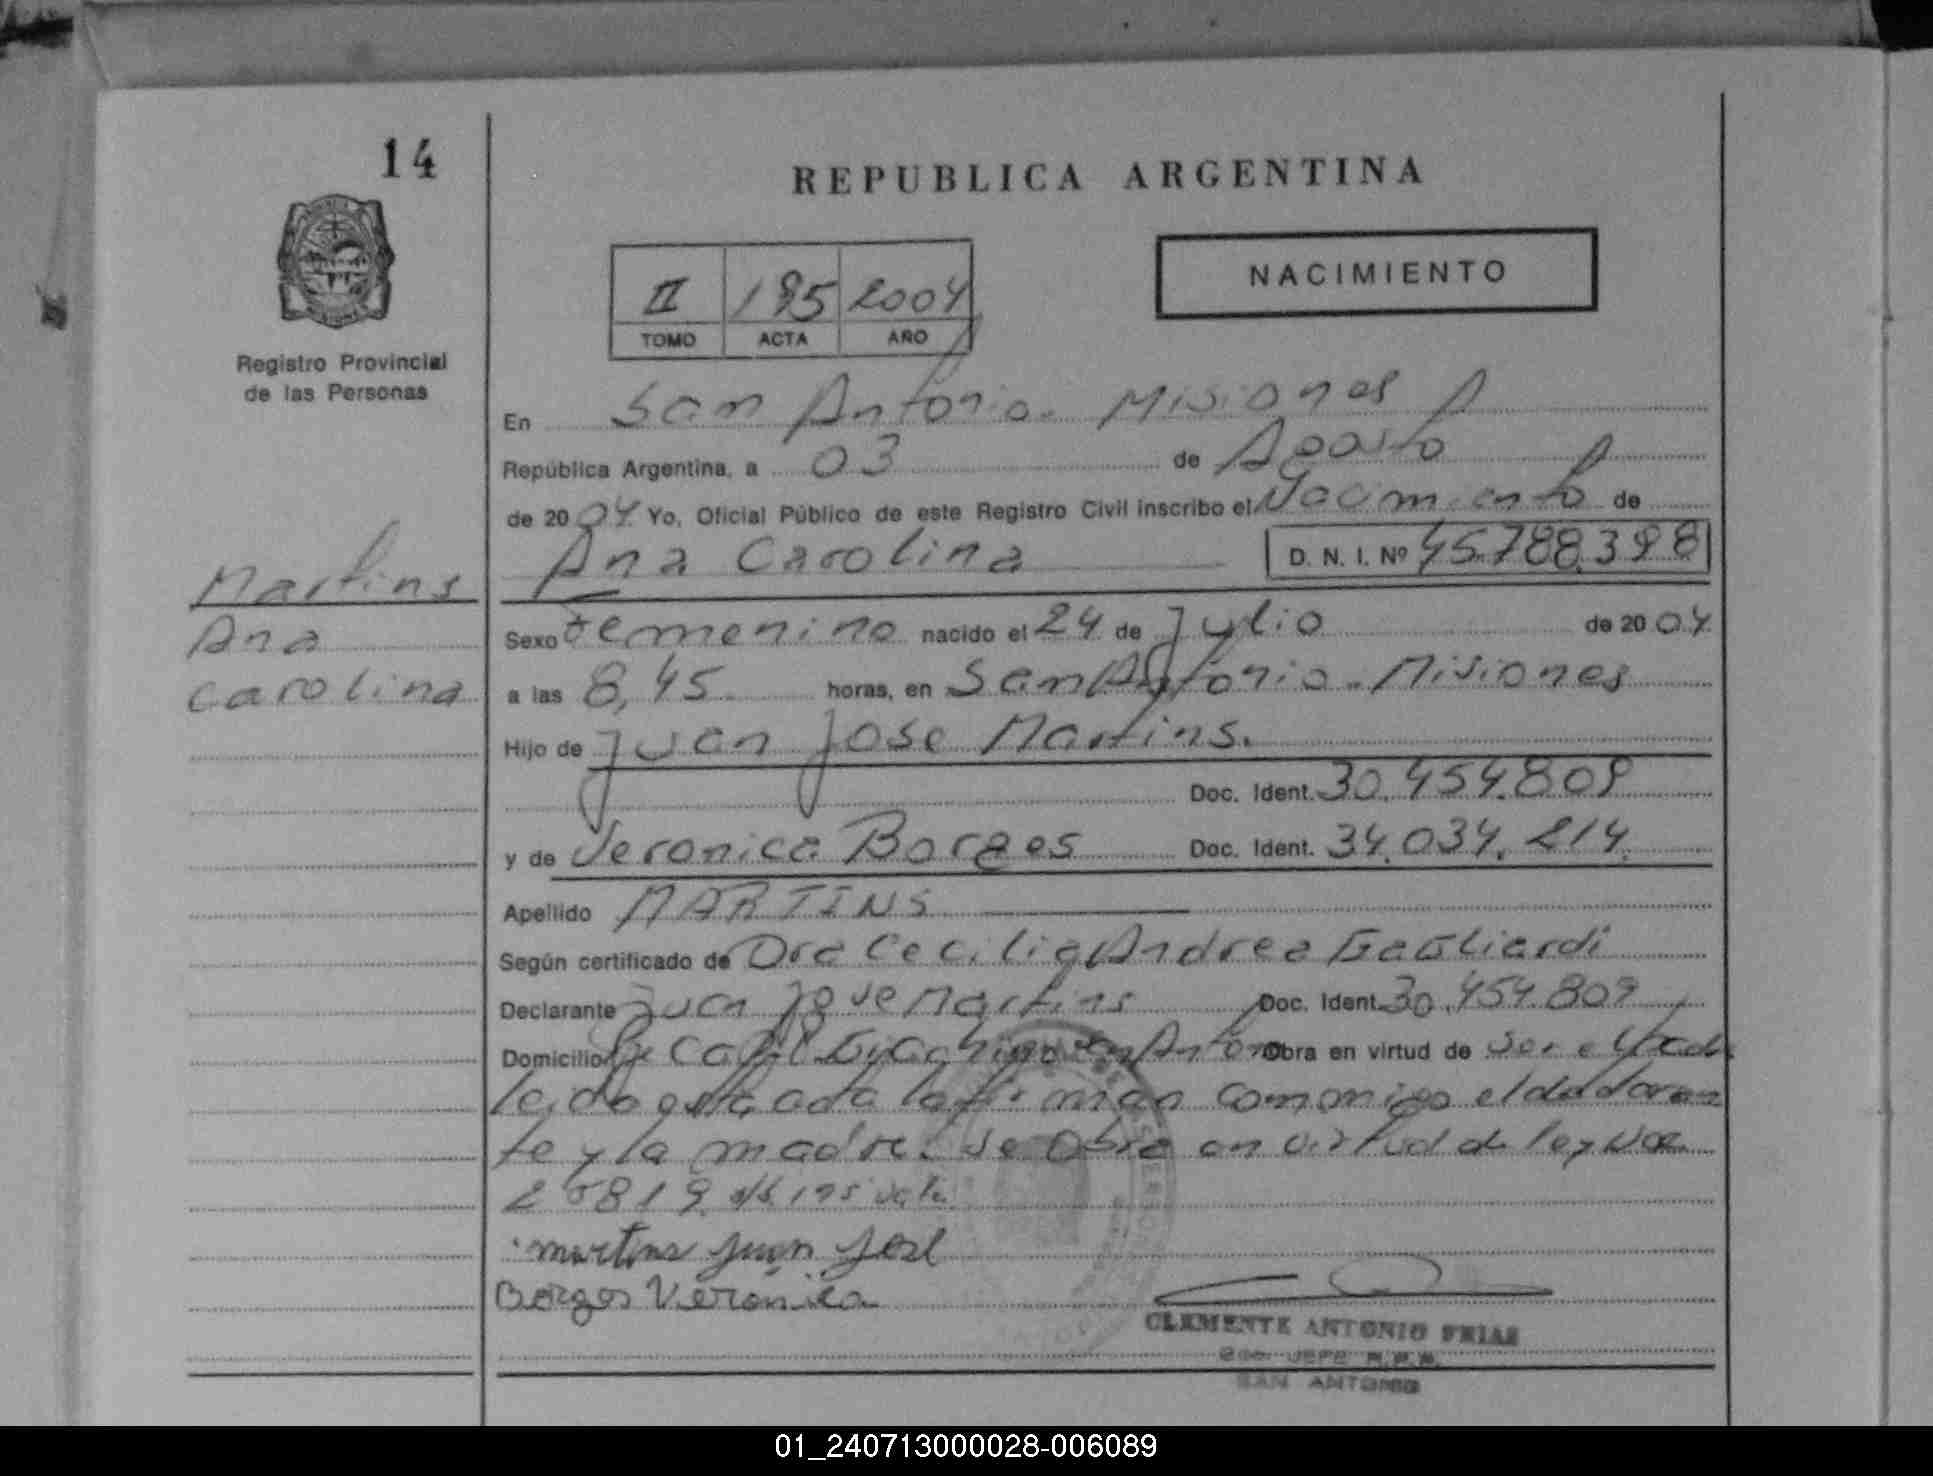 14
REPUBLICA ARGENTINA
NACIMIENTO
II 195 2004
TOMO ACTA AÑO
Registro Provincial
de las Personas
En San Antonio. Misiones
República Argentina, a 03 de Agosto
de 2004 Yo, Oficial Público de este Registro Civil inscribo el Nacimiento de
Ana Carolina D. N. I. Nº 45.788.398
Martins
Ana
Carolina
Sexo Femenino nacido el 24 de Julio de 2004
a las 8,45 horas, en San Antonio. Misiones
Hijo de Juan Jose Martins.
Doc. Ident. 30.454.809
y de Veronica Borges Doc. Ident. 34.034.214.
Apellido MARTINS
Según certificado de Dra Cecilia Andrea Gagliardi
Declarante Juan Jose Martins Doc. Ident. 30.454.809
Domicilio San Antonio Obra en virtud de ser el
leida esta acta la firman conmigo el declaran
te y la madre. Se obra en virtud de ley
martins Juan José
Borges Veronica
CLEMENTE ANTONIO FRIAS
JEFE R.P.P.
SAN ANTONIO
01_240713000028-006089